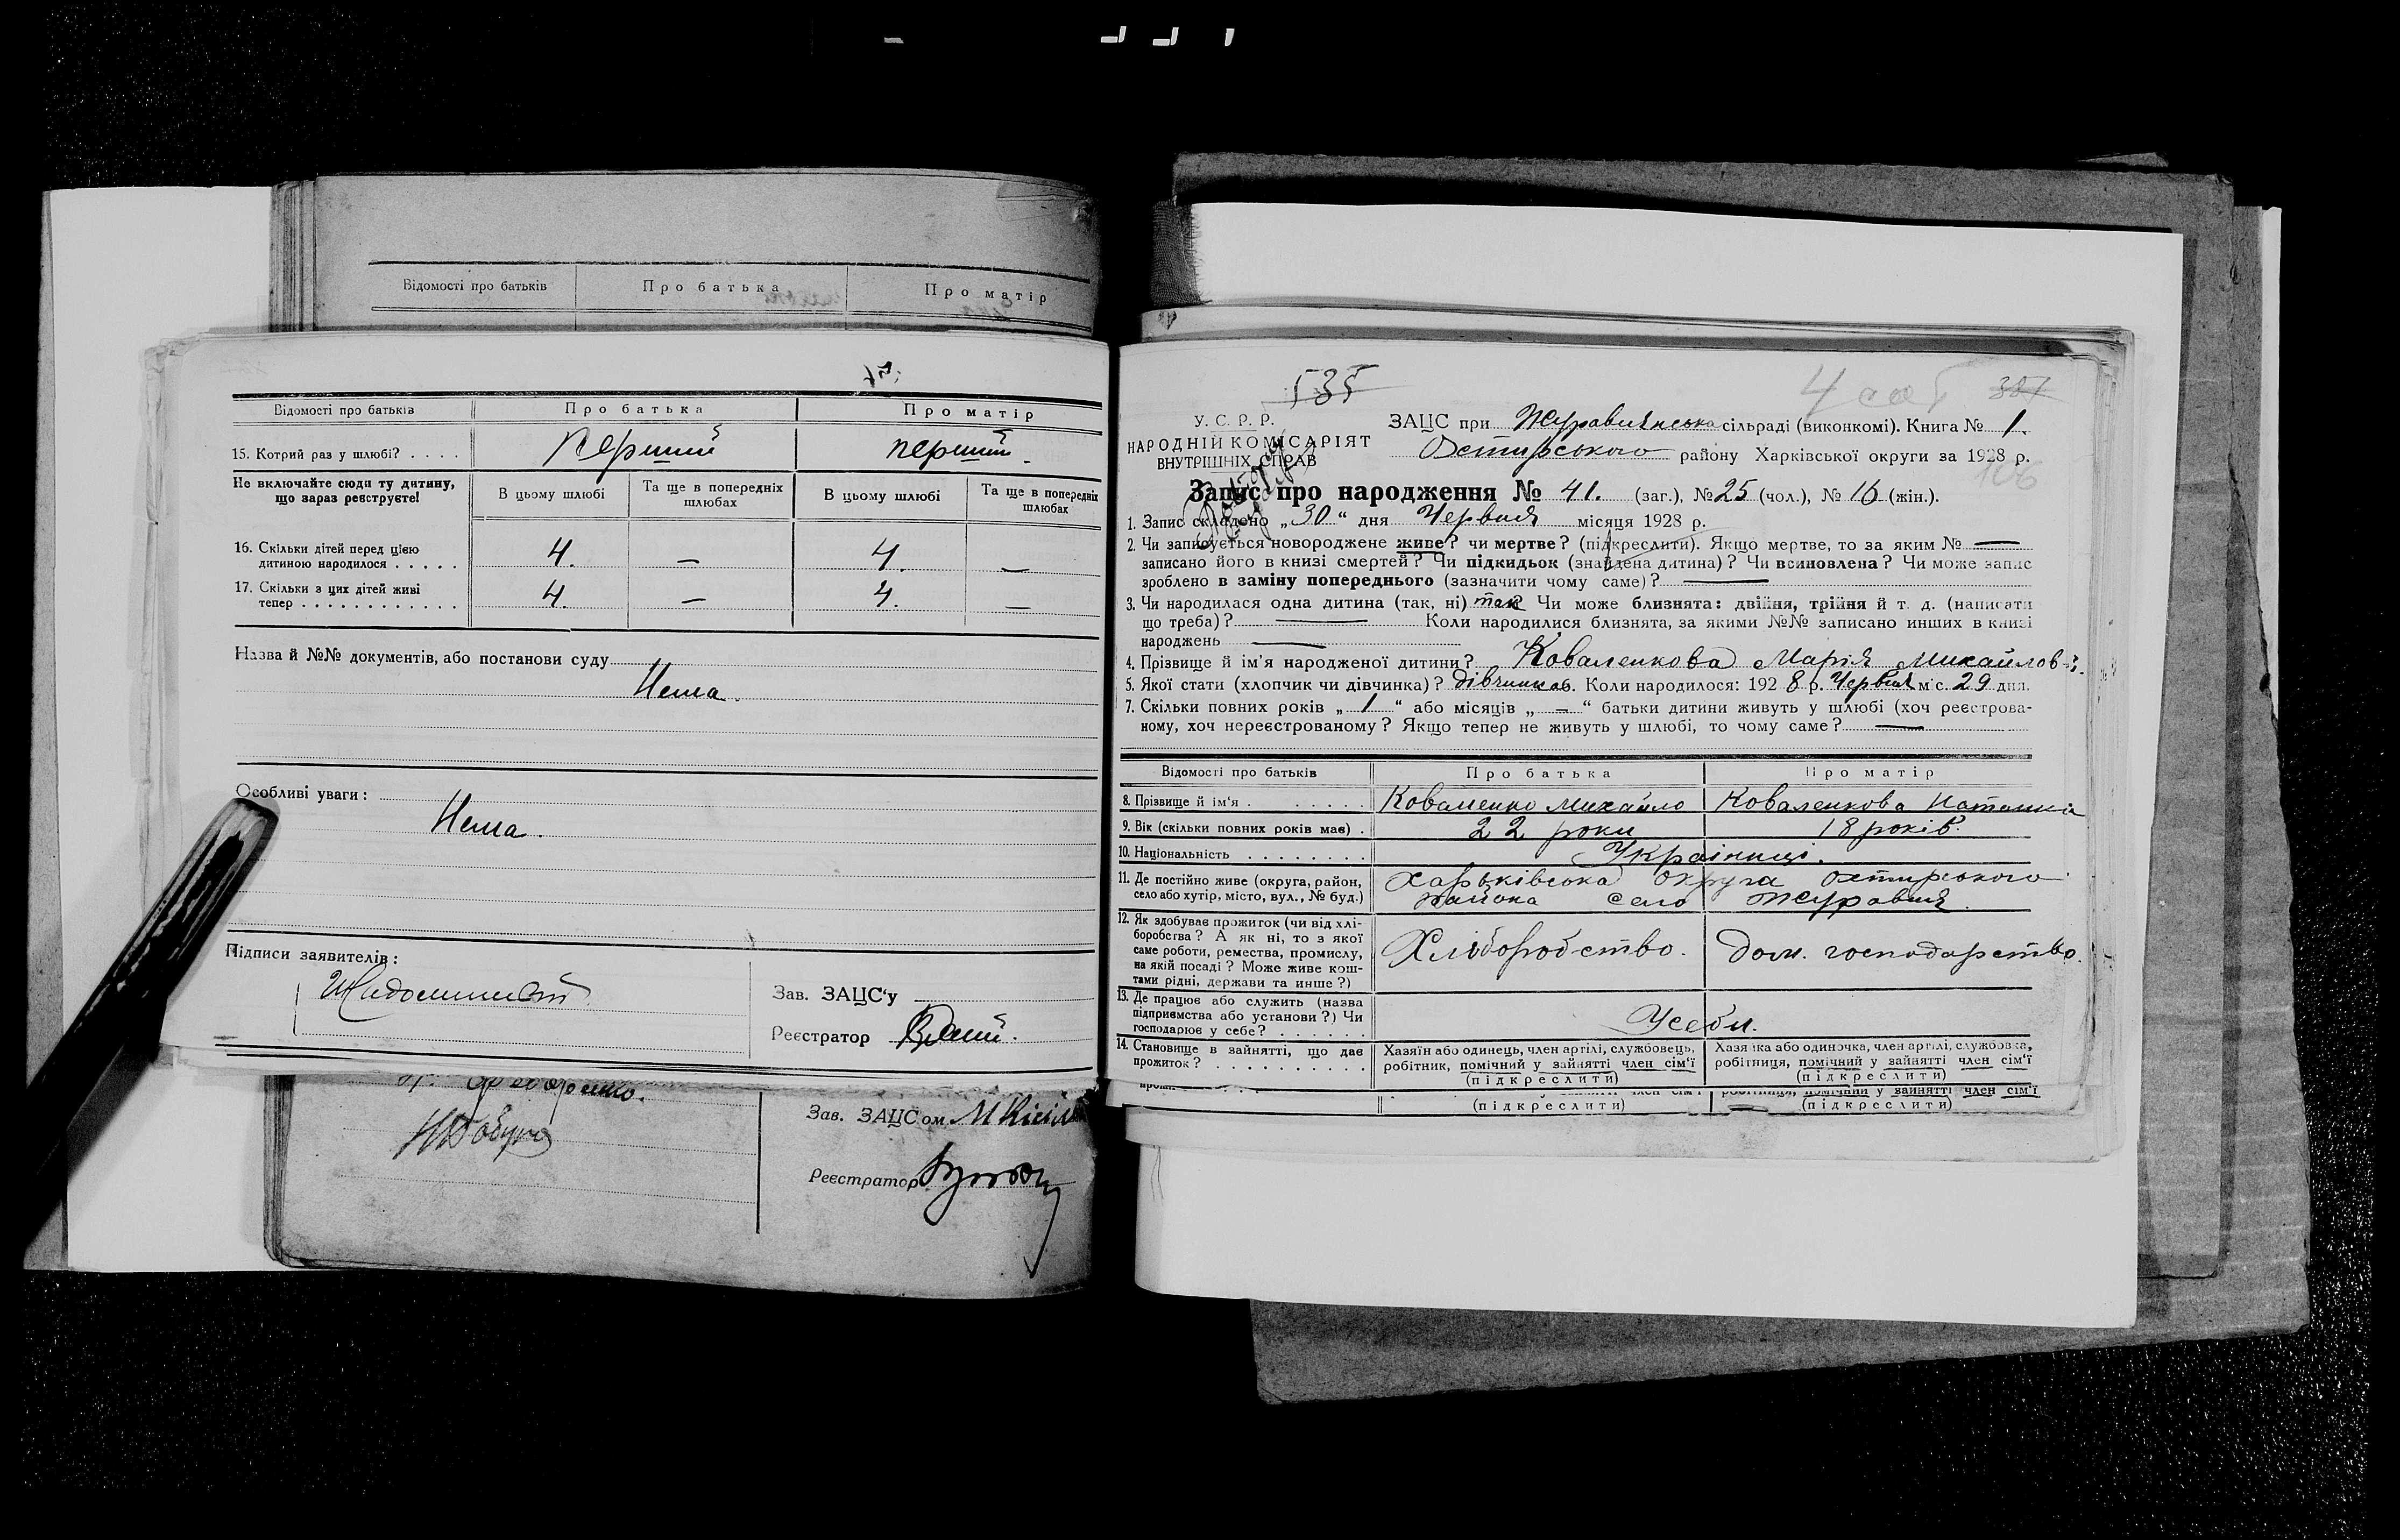 Відомості про батьків Про батька Про матір
Відомості про батьків Про батька Про матір
15. Котрий раз у шлюбі? . . . . Перший перший
Не включайте сюди ту дитину, що зараз реєструєте!
В цьому шлюбі Та ще в попередніх шлюбах В цьому шлюбі Та ще в попередніх шлюбах
16. Скільки дітей перед цією
дитиною народилося . . . . . 4. — 4. —
17. Скільки з цих дітей живі
тепер . . . . . . . . . . . . 4. — 4. —
Назва й №№ документів, або постанови суду
Нема.
Особливі уваги:
Нема.
Підписи заявителів:
Зав. ЗАЦС'у
Реєстратор
Зав. ЗАЦСом
Реєстратор
535
4 387
У. С. Р. Р.
НАРОДНІЙ КОМІСАРІЯТ
ВНУТРІШНІХ СПРАВ
ЗАЦС при Журавлянська сільраді (виконкомі). Книга № 1.
Охтирського району Харківської округи за 1928 р.
106
Запис про народження № 41. (заг.), № 25 (чол.), № 16 (жін.).
1. Запис складено „30“ дня Червня місяця 1928 р.
2. Чи записується новороджене живе? чи мертве? (підкреслити). Якщо мертве, то за яким № —
записано його в книзі смертей? Чи підкидьок (знайдена дитина)? Чи всиновлена? Чи може запис
зроблено в заміну попереднього (зазначити чому саме)? —
3. Чи народилася одна дитина (так, ні) так Чи може близнята: двійня, трійня й т. д. (написати
що треба)? — Коли народилися близнята, за якими №№ записано инших в книзі
народжень —
4. Прізвище й ім'я народженої дитини? Коваленкова Марія Михайлов
5. Якої стати (хлопчик чи дівчинка)? дівчинка 6. Коли народилося: 1928 р. Червня міс. 29 дня.
7. Скільки повних років „1“ або місяців „—“ батьки дитини живуть у шлюбі (хоч реєстрова-
ному, хоч нереєстрованому? Якщо тепер не живуть у шлюбі, то чому саме? —
Відомості про батьків Про батька Про матір
8. Прізвище й ім'я . . . . . . Коваленко Михайло Коваленкова Наталка
9. Вік (скільки повних років має) . 22 роки 18 років.
10. Національність . . . . . . . . Українці.
11. Де постійно живе (округа, район, Харьківська округа Охтирського
село або хутір, місто, вул., № буд.) района село Журавня.
12. Як здобуває прожиток (чи від хлі-
боробства? А як ні, то з якої
саме роботи, ремества, промислу, Хліборобство. Дом. господарство.
на якій посаді? Може живе кош-
тами рідні, держави та инше?)
13. Де працює або служить (назва
підприємства або установи?) Чи Усебы.
господарює у себе? . . . . . .
14. Становище в зайнятті, що дає Хазяїн або одинець, член артілі, службовець, Хазяйка або одиночка, член артілі, службовка,
прожиток? . . . . . . . . . . робітник, помічний у зайнятті член сім'ї робітниця, помічний у зайнятті член сім'ї
(підкреслити) (підкреслити)
робітниця, помічний у зайнятті член сім'ї
(підкреслити) (підкреслити)